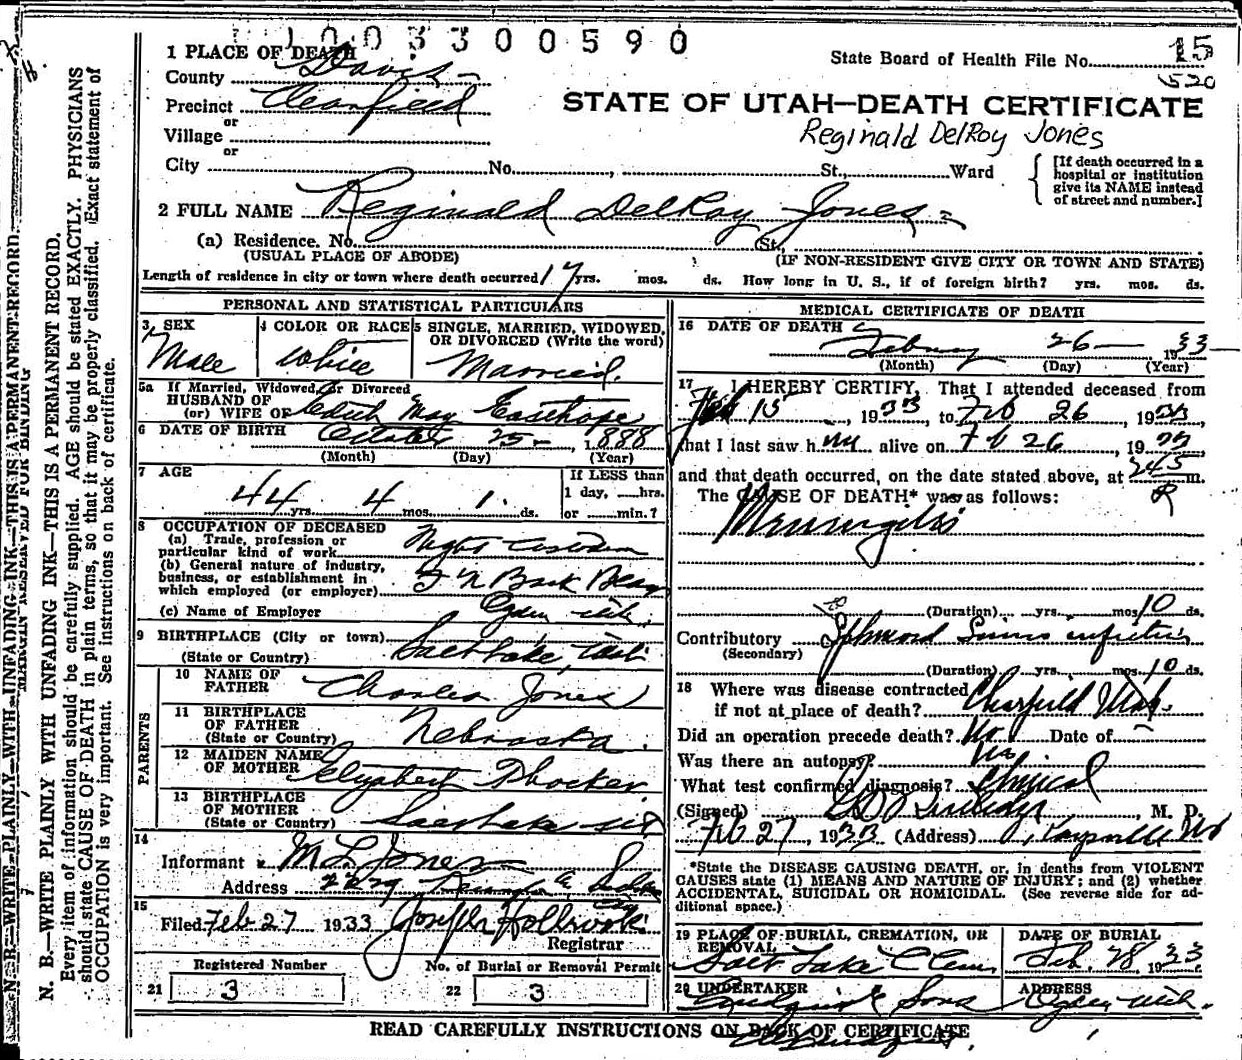 1003300590
State Board of Health File No. 15
520
STATE OF UTAH—DEATH CERTIFICATE
Reginald DelRoy Jones
1 PLACE OF DEATH
County Davis
Precinct Clearfield
or
Village
or
City No. , St., Ward
{ [If death occurred in a
hospital or institution
give its NAME instead
of street and number.]
2 FULL NAME Reginald DelRoy Jones
(a) Residence. No. St.,
(USUAL PLACE OF ABODE) (IF NON-RESIDENT GIVE CITY OR TOWN AND STATE)
Length of residence in city or town where death occurred 17 yrs. mos. ds. How long in U. S., if of foreign birth? yrs. mos. ds.
PERSONAL AND STATISTICAL PARTICULARS
3 SEX
Male
4 COLOR OR RACE
White
5 SINGLE, MARRIED, WIDOWED,
OR DIVORCED (Write the word)
Married
5a If Married, Widowed, or Divorced
HUSBAND OF
(or) WIFE OF Edith May Easthope
6 DATE OF BIRTH October 25 1888
(Month) (Day) (Year)
7 AGE
44 yrs. 4 mos. 1 ds.
If LESS than
1 day, hrs.
or min.?
8 OCCUPATION OF DECEASED
(a) Trade, profession or
particular kind of work Night Custodian
(b) General nature of industry,
business, or establishment in
which employed (or employer)
(c) Name of Employer Ogden Utah
9 BIRTHPLACE (City or town) Salt Lake, Utah
(State or Country)
PARENTS
10 NAME OF
FATHER Charles Jones
11 BIRTHPLACE
OF FATHER
(State or Country) Nebraska.
12 MAIDEN NAME
OF MOTHER Elizabeth
13 BIRTHPLACE
OF MOTHER
(State or Country) Salt Lake
14
Informant M L Jones
Address
15
Filed Feb 27 1933 Joseph Holbrook
Registrar
Registered Number
21 3
No. of Burial or Removal Permit
22 3
MEDICAL CERTIFICATE OF DEATH
16 DATE OF DEATH
February 26 1933
(Month) (Day) (Year)
17 I HEREBY CERTIFY, That I attended deceased from
Feb 15, 1933, to Feb 26, 1933,
that I last saw him alive on Feb 26, 1933
and that death occurred, on the date stated above, at 245 P m.
The CAUSE OF DEATH* was as follows:
Meningitis
(Duration) yrs. mos. 10 ds.
Contributory Sphenoid Sinus infection
(Secondary)
(Duration) yrs. mos. 10 ds.
18 Where was disease contracted
if not at place of death? Clearfield Utah.
Did an operation precede death? No Date of
Was there an autopsy? No
What test confirmed diagnosis? Clinical
(Signed) , M. D.
Feb 27, 1933 (Address) Kaysville Ut
*State the DISEASE CAUSING DEATH, or, in deaths from VIOLENT
CAUSES state (1) MEANS AND NATURE OF INJURY; and (2) whether
ACCIDENTAL, SUICIDAL OR HOMICIDAL. (See reverse side for ad-
ditional space.)
19 PLACE OF BURIAL, CREMATION, OR
REMOVAL
Salt Lake C Cem
DATE OF BURIAL
Feb. 28, 1933
20 UNDERTAKER
Lindquist & Sons
ADDRESS
Ogden Utah.
READ CAREFULLY INSTRUCTIONS ON BACK OF CERTIFICATE
N. B.—WRITE PLAINLY WITH UNFADING INK—THIS IS A PERMANENT RECORD.
Every item of information should be carefully supplied. AGE should be stated EXACTLY. PHYSICIANS
should state CAUSE OF DEATH in plain terms, so that it may be properly classified. (Exact statement of
OCCUPATION is very important. See instructions on back of certificate.
N. B.—WRITE PLAINLY WITH UNFADING INK—THIS IS A PERMANENT RECORD.
MARGIN RESERVED FOR BINDING